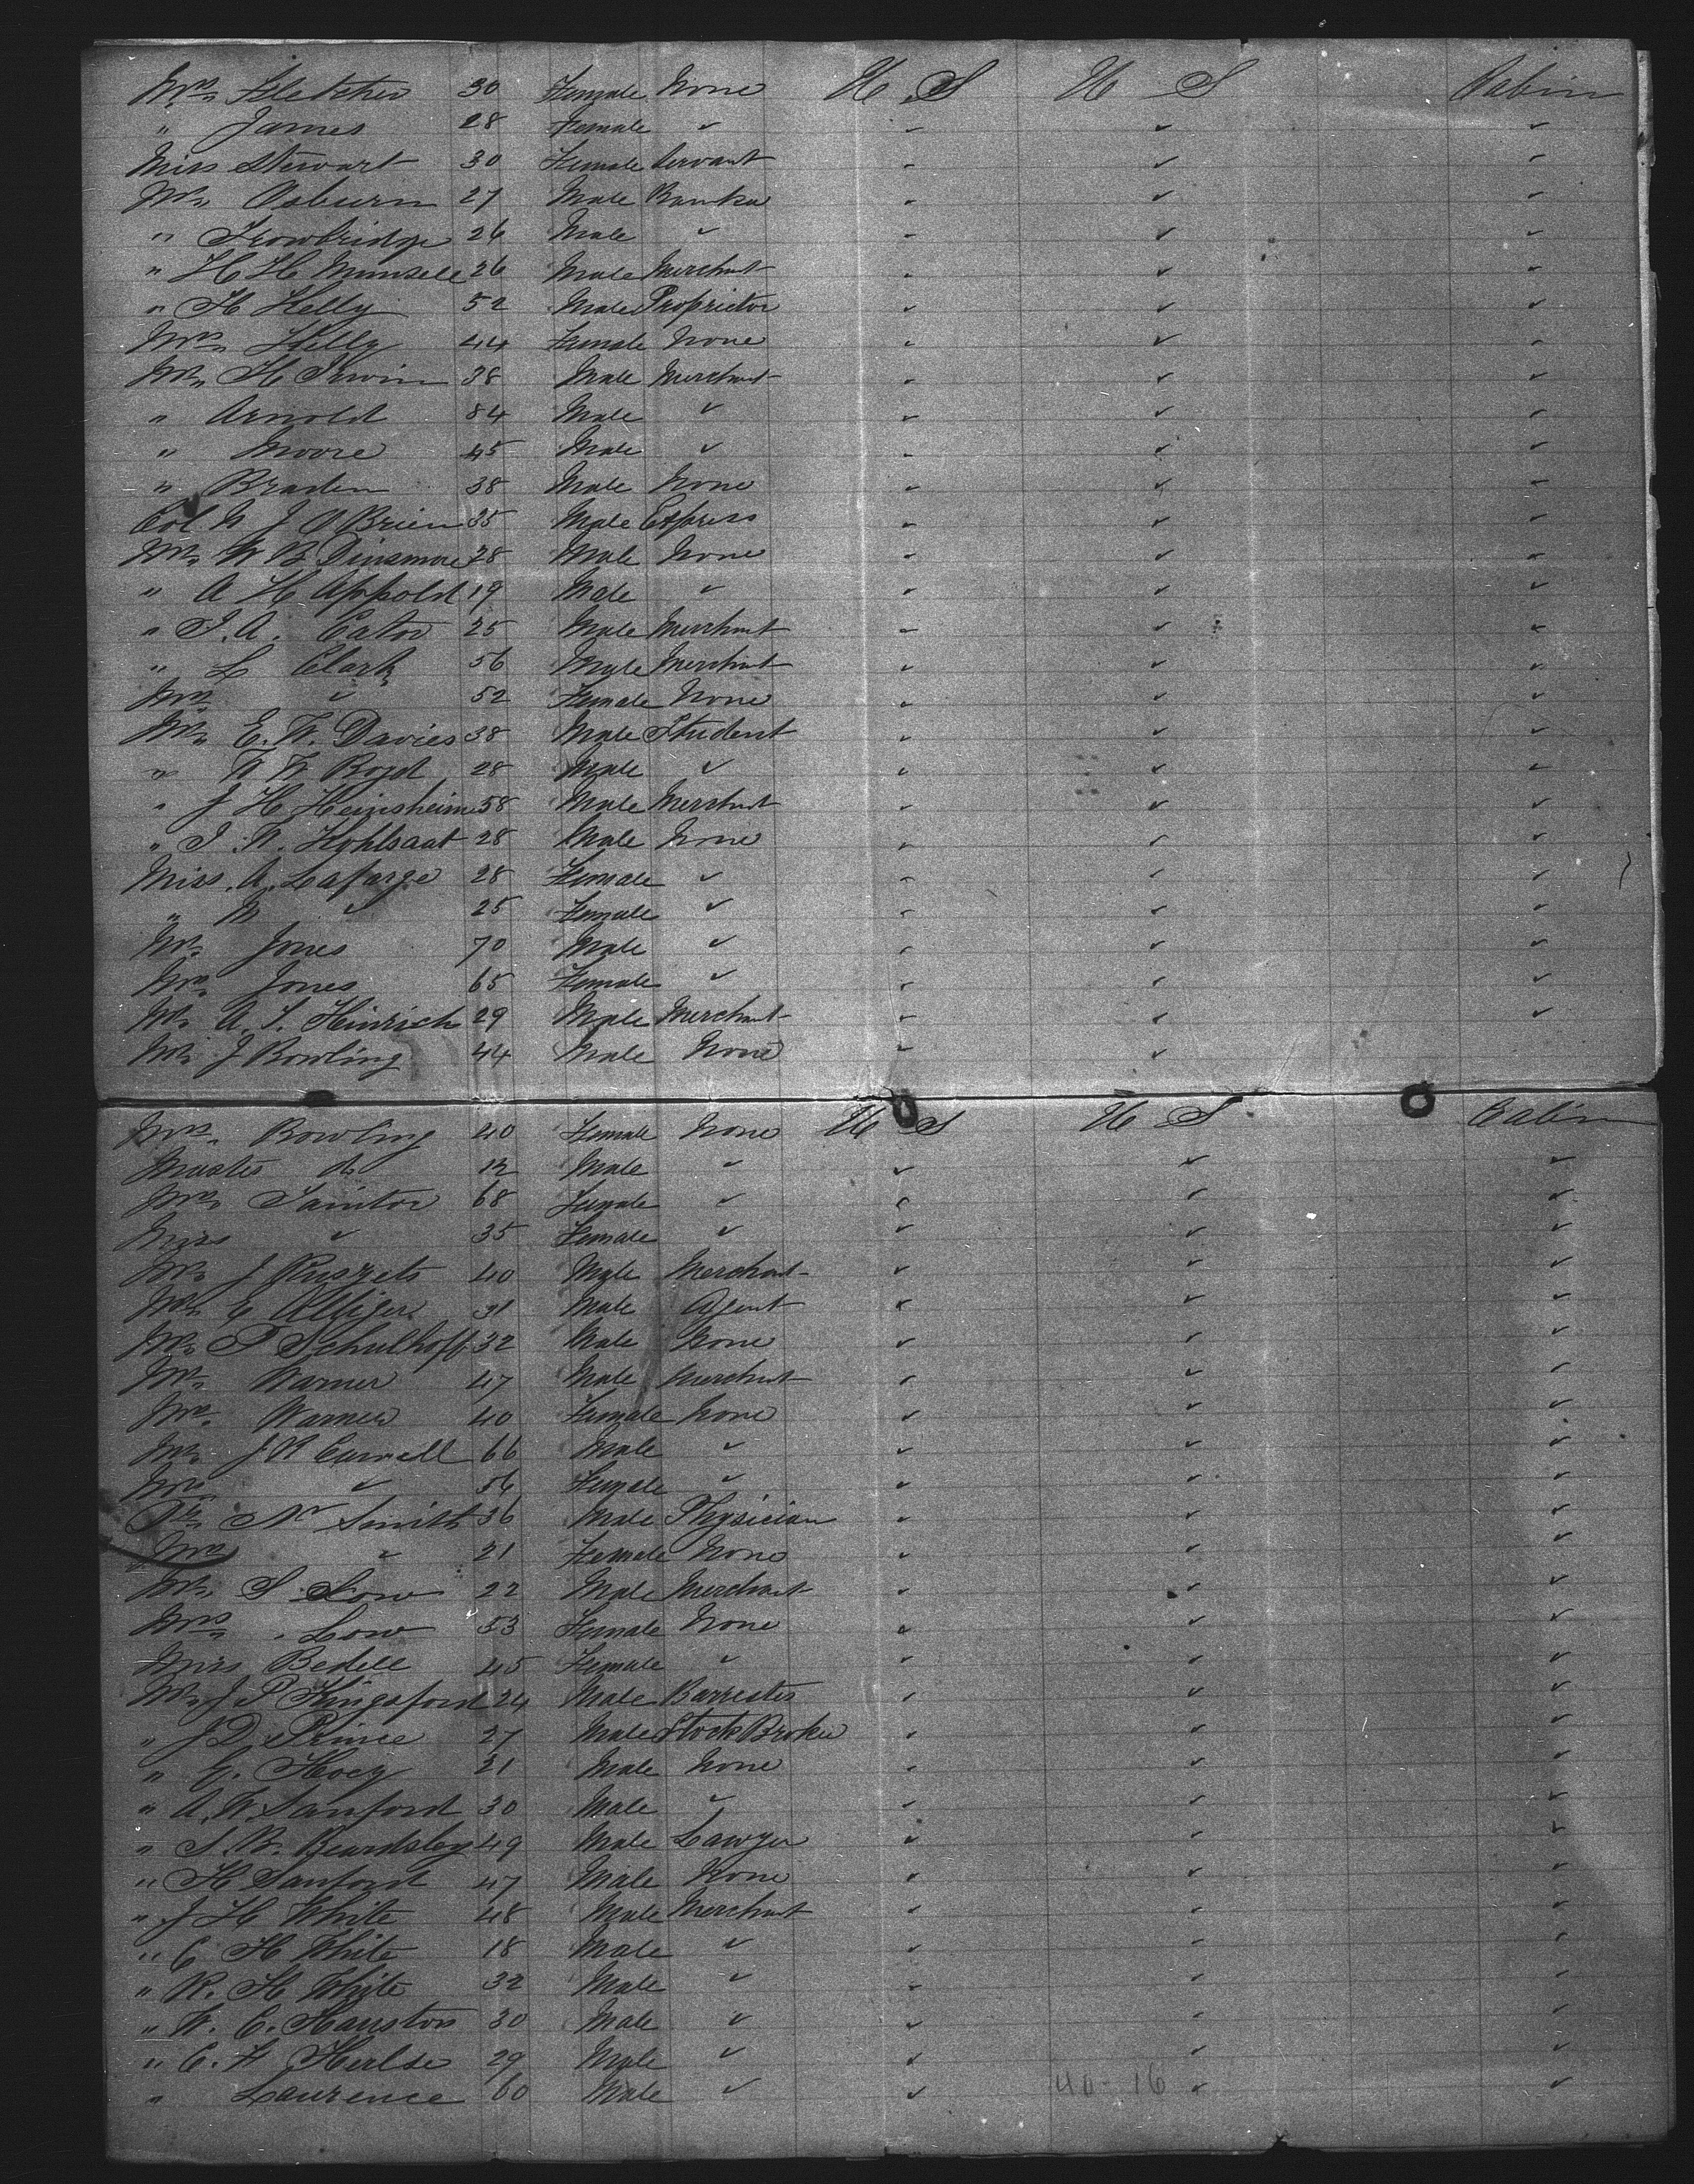 Mrs Fletcher 30 Female None U S U S Cabin
" James 28 Female " " " "
Miss Stewart 30 Female Servant " " "
Mr. Osburn 27 Male Banker " " "
" Trowbridge 26 Male " " " "
" H H Munsell 26 Male Merchant " " "
" H Kelly 52 Male Proprietor " " "
Mrs Kelly 44 Female None " " "
Mr. H Irwin 38 Male Merchant " " "
" Arnold 84 Male " " " "
" Moore 45 Male " " " "
" Braden 38 Male None " " "
Col W J O'Brien 35 Male Express " " "
Mr. W B Dinsmore 28 Male None " " "
" A H Appold 19 Male " " " "
" J. A. Cator 25 Male Merchant " " "
" L Clark 56 Male Merchant " " "
Mrs " 52 Female None " " "
Mr. E. W. Davies 38 Male Student " " "
" W W Boyd 28 Male " " " "
" J H Heinsheim 58 Male Merchant " " "
" J. W. Kohlsaat 28 Male None " " "
Miss. A. Lafarge 28 Female " " " "
" M " 25 Female " " " "
Mr. Jones 70 Male " " " "
Mrs. Jones 65 Female " " " "
Mr. A. S. Hinrich 29 Male Merchant " " "
Mr. J Bowling 44 Male None " "
Mrs. Bowling 40 Female None U S U S Cabin
Master do 12 Male " " " "
Mrs. Taintor 68 Female " " " "
Miss " 35 Female " " " "
Mr. J 40 Male Merchant " " "
Mr. C Alliger 31 Male Agent " " "
Mr. P Schulhoff 32 Male None " " "
Mr. Warner 47 Male Merchant " " "
Mrs. Warner 40 Female None " " "
Mr. J R Carnell 66 Male " " " "
Mrs " 56 Female " " " "
Dr. Smith 36 Male Physician " " "
Mrs " 21 Female None " " "
Mr. S Low 22 Male Merchant " " "
Mrs. Low 53 Female None " " "
Miss Bedell 45 Female " " " "
Mr. J P Kingsford 24 Male Barrester " " "
" J D Prince 27 Male Stock Broker " " "
" G. Hoey 21 Male None " " "
" A. W. Sanford 30 Male " " " "
" S. B. Beardsley 49 Male Lawyer " " "
" H Sanford 47 Male None " " "
" J H White 48 Male Merchant " " "
" C H White 18 Male " " " "
" R. H White 32 Male " " " "
" W. C. Hauston 30 Male " " " "
" C. F Herlse 29 Male " " " "
" Laurence 60 Male " " 40-16 " "